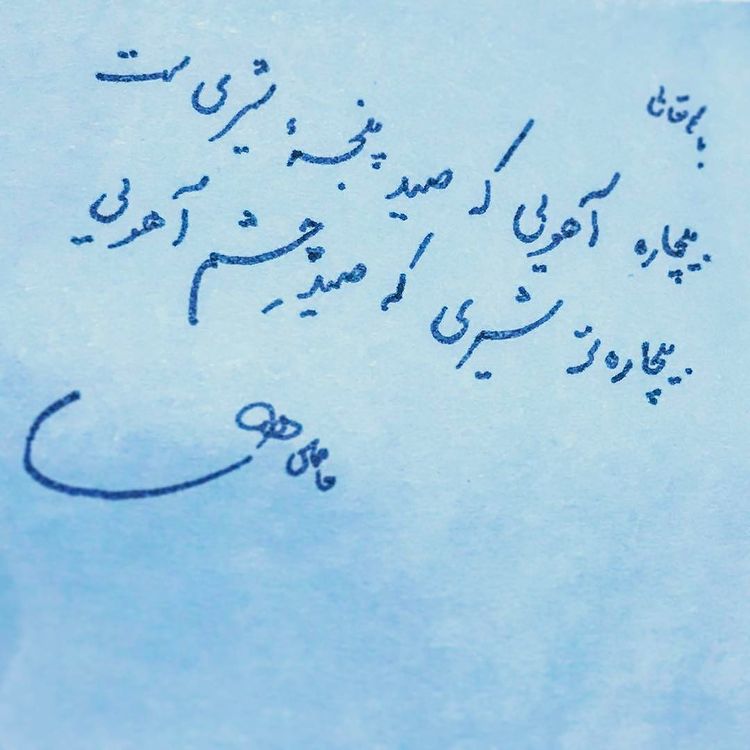 بیچاره آهویی که صید پنجهٔ شیری ست
بیچاره تر شیری که صیدِ چشم آهویی